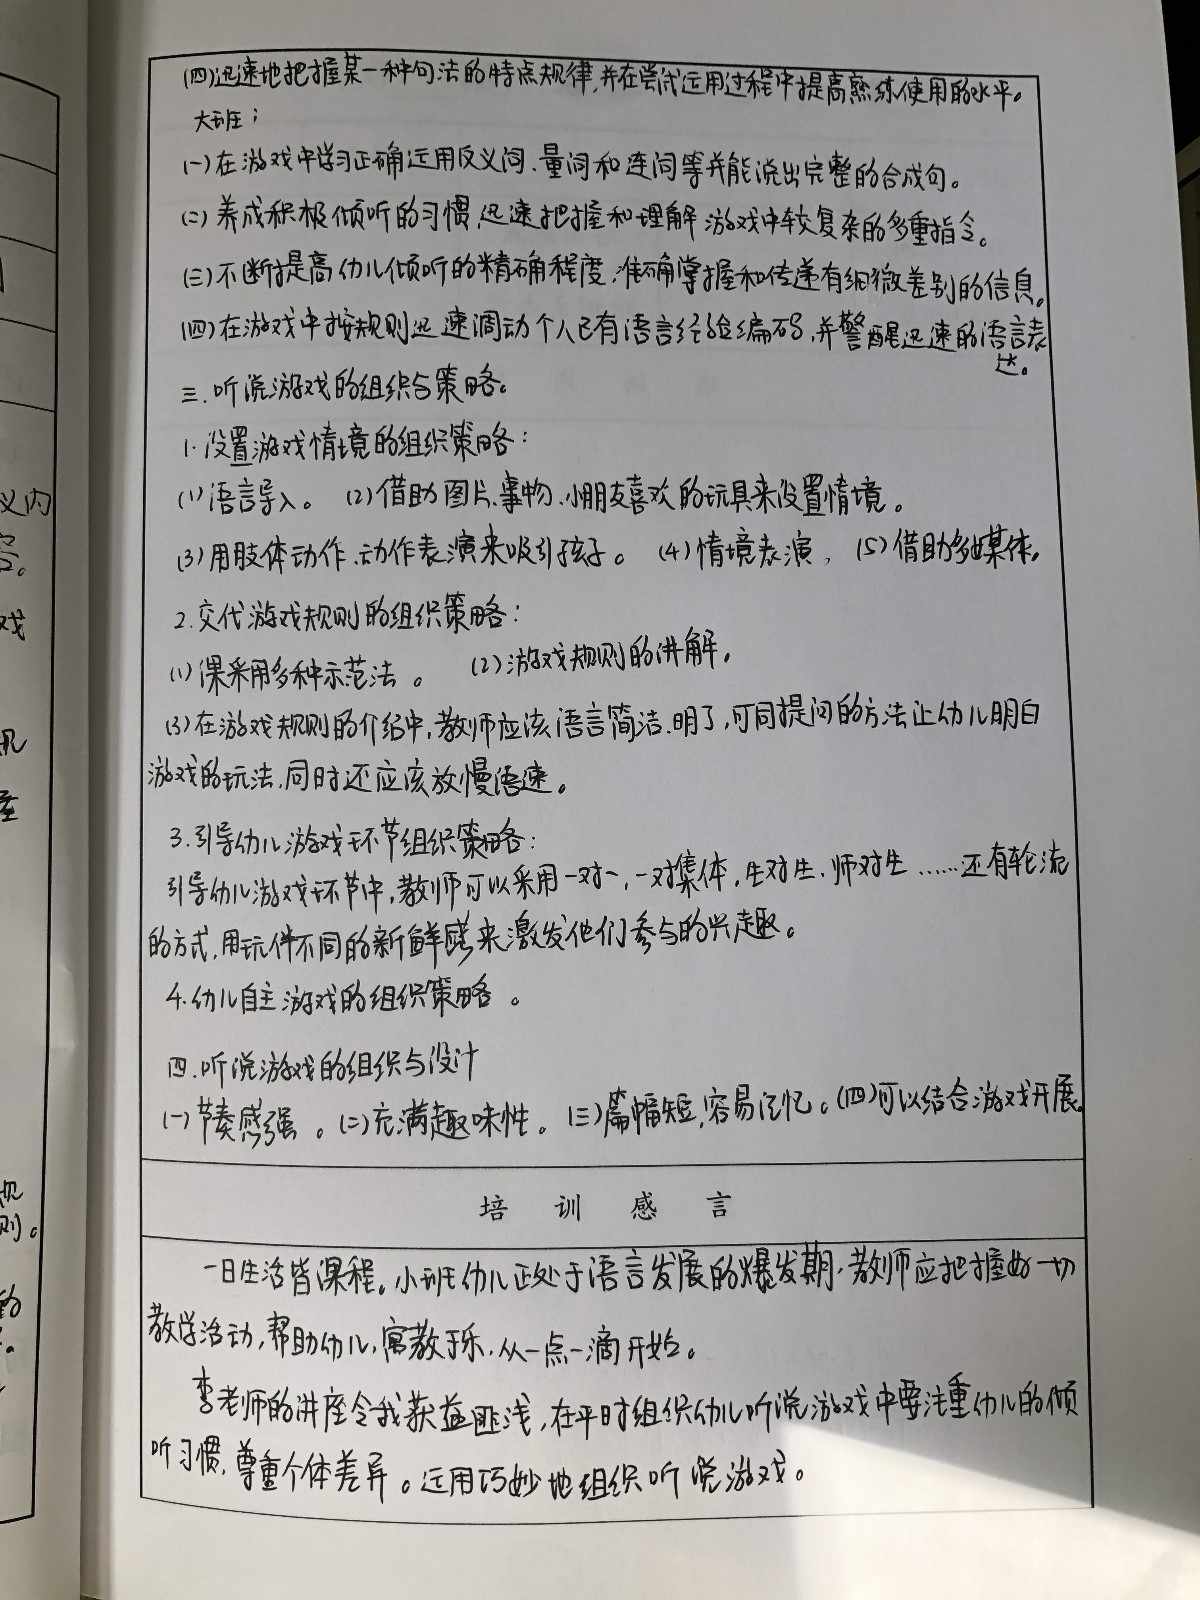 (四)迅速地把握某一种句法的特点规律,并在尝试运用过程中提高熟练使用的水平。
大班:
(一)在游戏中学习正确运用反义词、量词和连词等并能说出完整的合成句。
(二)养成积极倾听的习惯,迅速把握和理解游戏中较复杂的多重指令。
(三)不断提高幼儿倾听的精确程度,准确掌握和传递有细微差别的信息。
(四)在游戏中按规则迅速调动个人已有语言经验编码,并警醒迅速的语言表
达。
三.听说游戏的组织与策略。
1.设置游戏情境的组织策略:
(1)语言导入。 (2)借助图片、事物、小朋友喜欢的玩具来设置情境。
(3)用肢体动作、动作表演来吸引孩子。 (4)情境表演, (5)借助多媒体。
2.交代游戏规则的组织策略:
(1)课采用多种示范法。 (2)游戏规则的讲解。
(3)在游戏规则的介绍中,教师应该语言简洁、明了,可同提问的方法让幼儿明白
游戏的玩法,同时还应该放慢语速。
3.引导幼儿游戏环节组织策略:
引导幼儿游戏环节中,教师可以采用一对一,一对集体,生对生、师对生……还有轮流
的方式,用玩伴不同的新鲜感来激发他们参与的兴趣。
4.幼儿自主游戏的组织策略。
四.听说游戏的组织与设计
(一)节奏感强。(二)充满趣味性。(三)篇幅短,容易记忆。(四)可以结合游戏开展。
培训感言
一日生活皆课程。小班幼儿正处于语言发展的爆发期,教师应把握好一切
教学活动,帮助幼儿,寓教于乐,从一点一滴开始。
李老师的讲座令我获益匪浅,在平时组织幼儿听说游戏中要注重幼儿的倾
听习惯,尊重个体差异。运用巧妙地组织听说游戏。
义内
容。
戏
规
则。
的